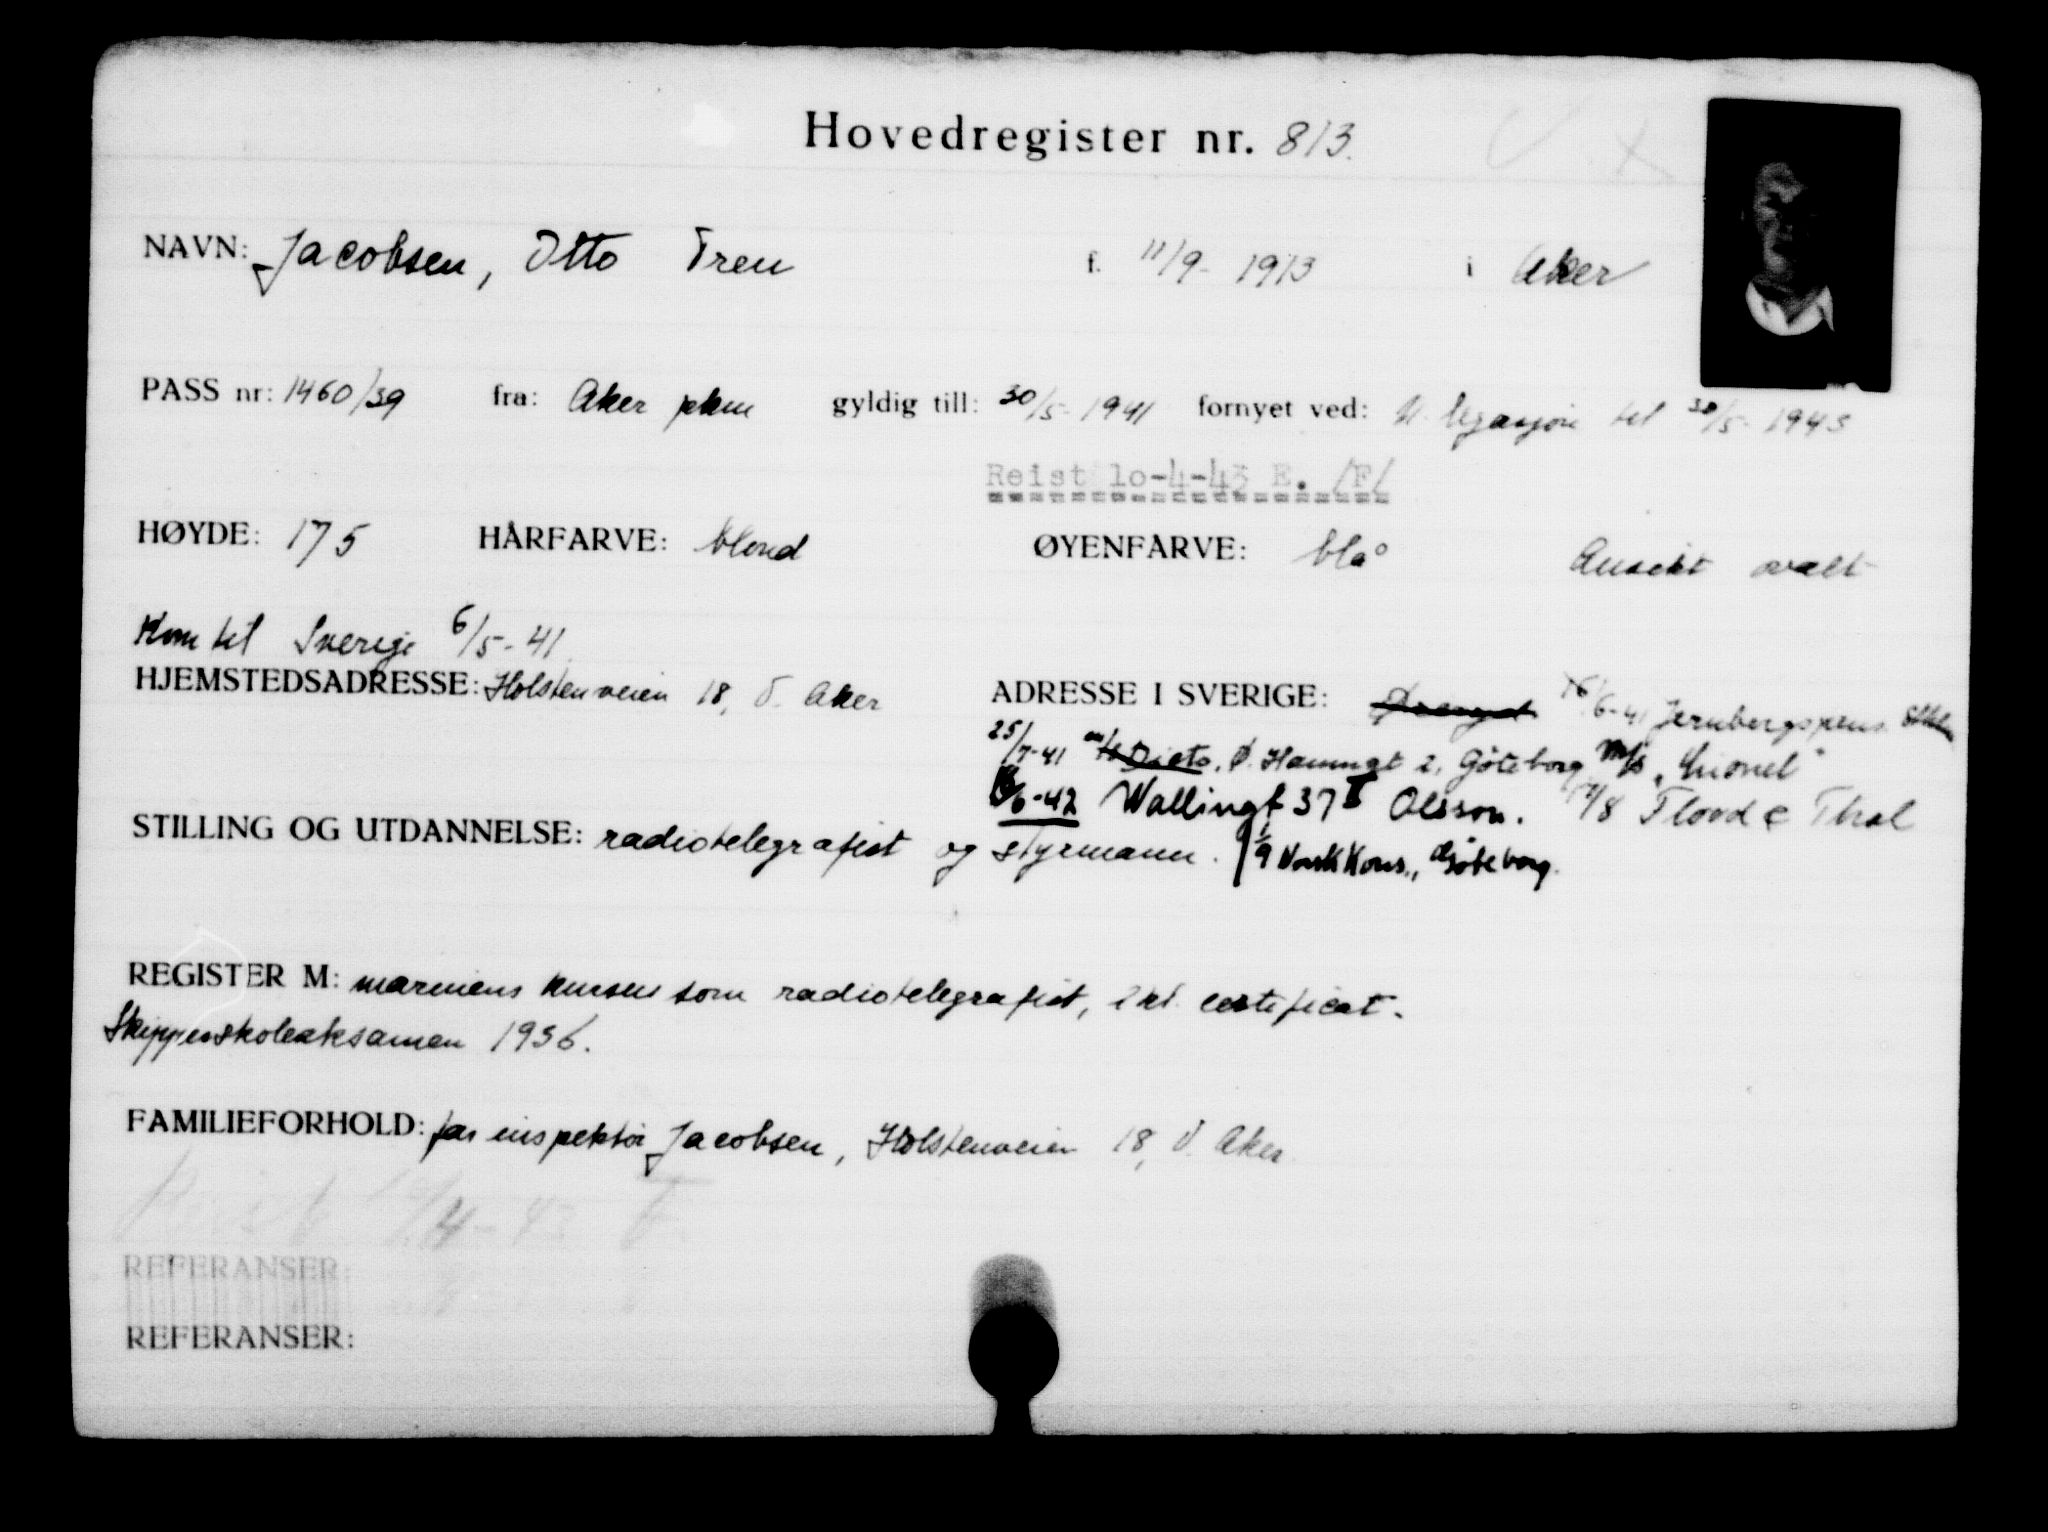 Hovedregister nr. 813.
NAVN: Jacobsen, Otto Tren f. 11/9- 1913 i Aker
PASS nr: 1460/39 fra: Aker pkm gyldig till: 30/5- 1941 fornyet ved: N. legasjon til 30/5- 1943
Reist 10-4-43 E. /F/
HØYDE: 175 HÅRFARVE: blond ØYENFARVE: blå Ansikt ovalt
Kom til Sverige 6/5-41.
HJEMSTEDSADRESSE: Holstenveien 18, V. Aker ADRESSE I SVERIGE: 6-41 Jernbergspens.
25/7-41 m/t Dicto, Ø. Hamngt 2, Göteborg M/s "Lionel"
6-42 Wallingt 37 II Olsson. /8 Flood c Thal
STILLING OG UTDANNELSE: radiotelegrafist og styrmann. 1/9 Norsk Kons., Göteborg.
REGISTER M: marinens kursus som radiotelegrafist, 2 kl. certificat.
Skipperskoleeksamen 1936.
FAMILIEFORHOLD: far inspektör Jacobsen, Holstenveien 18, V. Aker.
Reist 10/4-43 F.
REFERANSER:
REFERANSER: